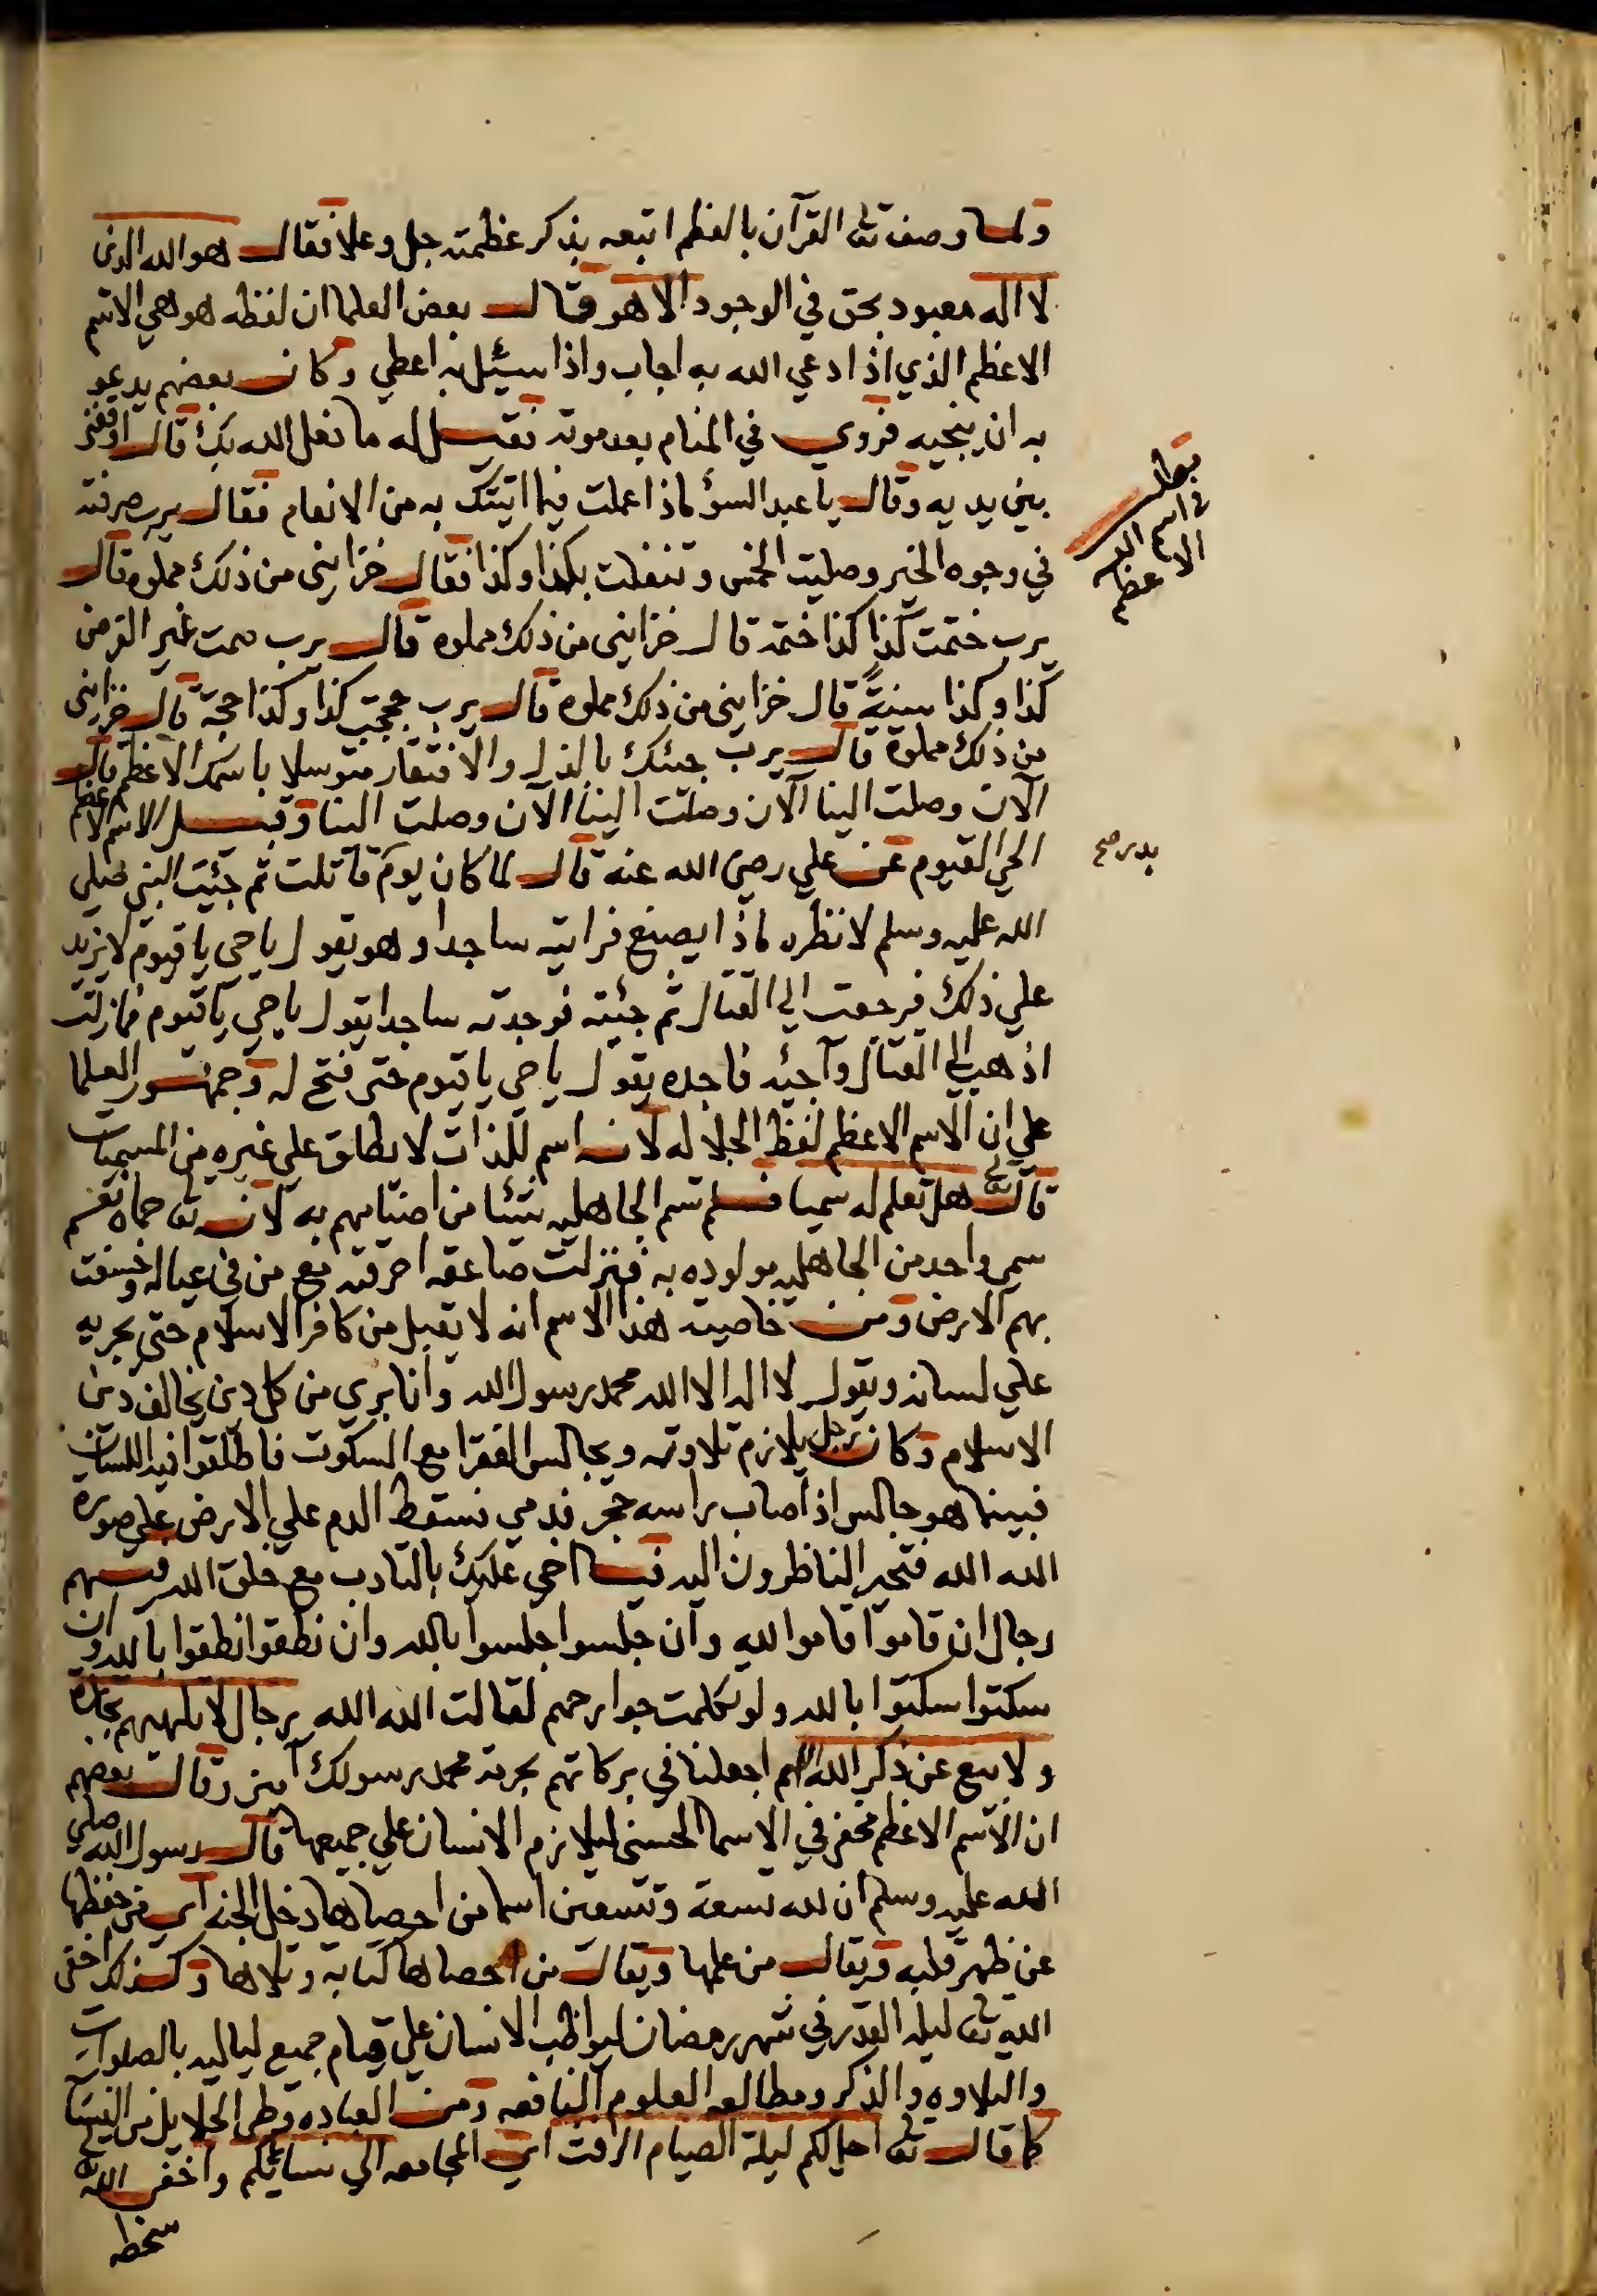 ولما وصف تعالى القرآن بالعظم اتبعه بذكر عظمته جل وعلا فقال هو الله الذي
لا اله معبود بحق في الوجود الا هو قال بعض العلما ان لفظه هو هي الاسم
الاعظم الذي اذا دعي الله به اجاب واذا سيئل به اعطي وكان بعضهم يدعو
به ان ينجيه فروي في المنام بعد موته فقيل له ما فعل الله بك قال اوقفني
بين يديه وقال يا عبد السوؤ ماذا عملت فيما اتيتك به من الانعام فقال يرب صرفته
في وجوه الخير وصليت الخمس وتنفلت بكذا وكذا فقال خزايني من ذلك مملوه قال
يرب ختمت كذا كذا ختمة قال خزايني من ذلك مملوه قال يرب صمت غير الفرض
كذا وكذا سنيةً قال خزايني من ذلك مملوه قال يرب حججت كذا وكذا حجة قال خزايني
من ذلك مملوة قال يرب جئتك بالذل والافتقار متوسلا باسمك الاعظم قال
الآن وصلت الينا الآن وصلت الينا الآن وصلت الينا وقيل الاسم الاعظم
الحي القيوم عن علي رضي الله عنه قال لما كان يوم قاتلت ثم جئيت النبي صلي
الله عليه وسلم لانظره ماذا يصنع فرايته ساجدا وهو يقول يا حي يا قيوم لا يزيد
علي ذلك فرجعت الي القتال ثم جئيته فوجدته ساجدا يقول يا حي يا قيوم فما زلت
اذهب الي القتال وآجيئه فاجده يقول يا حي يا قيوم حتى فتح له وجمهور العلما
علي ان الاسم الاعظم لفظ الجلاله لانه اسم للذات لا يطلق علي غيره من المسميات
قال تعالى هل تعلم له سميا فلم تسم الجاهليه شيئا من اصنامهم به لانه تعالى حماه نعم
سمي واحد من الجاهليه مولوده به فنزلت صاعقه احرقته مع من في عياله وخسفت
بهم الارض ومن خاصية هذا الاسم انه لا يقبل من كافر الاسلام حتى يجريه
علي لسانه ويقول لا اله الا الله محمد رسول الله وانا بري من كل دين يخالف دين
الاسلام وكان رجل يلازم تلاوته ويجالس الفقرا مع السكوت فاطلقوا فيه اللسان
فبينما هو جالس اذ اصاب راسه حجر فدمي فسقط الدم علي الارض علي صورة
الله الله فتحير الناظرون اليه فيا اخي عليك بالتادب مع خلق الله فمنهم
رجال ان قاموا قاموا لله وان جلسوا جلسوا بالله وان نطقوا نطقوا بالله وان
سكتوا سكتوا بالله ولو تكلمت جوارحهم لقالت الله الله رجال لا تلهيهم تجارة
ولا بيع عن ذكر الله اللهم اجعلنا في بركاتهم بحرمة محمد رسولك آمين وقال بعضهم
ان الاسم الاعظم مخفي في الاسما الحسنى ليلازم الانسان علي جميعها قال رسول الله صلي
الله عليه وسلم ان لله تسعة وتسعين اسما من احصاها دخل الجنه اي من حفظها
عن ظهر قلبه ويقال من علمها ويقال من احصاها كتابة وتلاها وكذلك اخفى
الله تعالى ليله القدر في شهر رمضان ليواظب الانسان علي قيام جميع لياليه بالصلوات
والتلاوه والذكر ومطالعه العلوم النافعه ومن العباده وطئ الحلايل من النسآ
كما قال تعالى احل لكم ليلة الصيام الرفث اي المجامعه الي نسائكم واخفى الله تعالى
سخطه
مطلب
في اسم الله
الاعظم
بدر صح